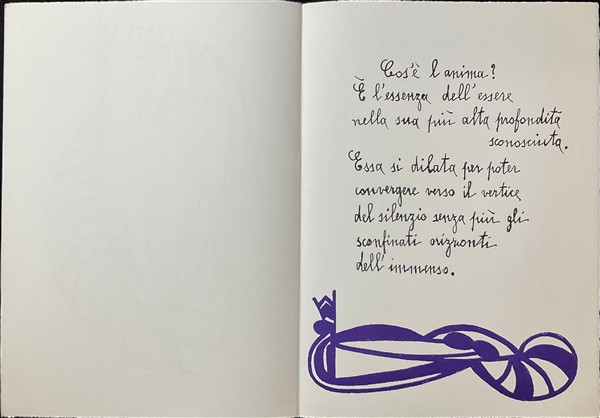 Cos'è l'anima?
È l'essenza dell'essere
nella sua più alta profondità
sconosciuta.
Essa si dilata per poter
convergere verso il vertice
del silenzio senza più gli
sconfinati orizzonti
dell'immenso.